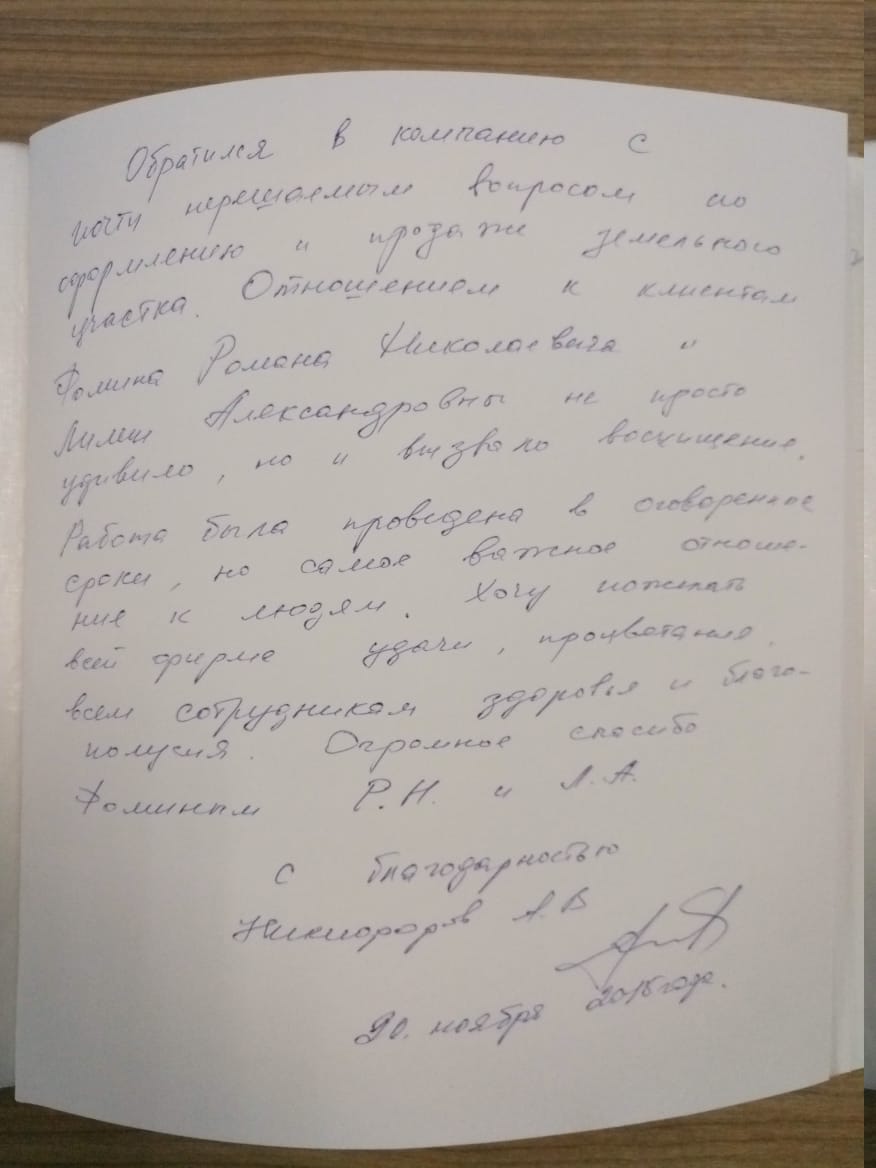 Обратился в компанию с
почти нерешаемым вопросом по
оформлению и продаже земельного
участка. Отношением к клиентам
Фомина Романа Николаевича и
Лилии Александровны не просто
удивило, но и вызвало восхищение.
Работа была проведена в оговоренные
сроки, но самое важное отноше-
ние к людям. Хочу пожелать
всей фирме удачи, процветания,
всем сотрудникам здоровья и благо-
получия. Огромное спасибо
Фоминым Р.Н. и Л.А.
С благодарностью
Никифоров А.В
20. ноября года.